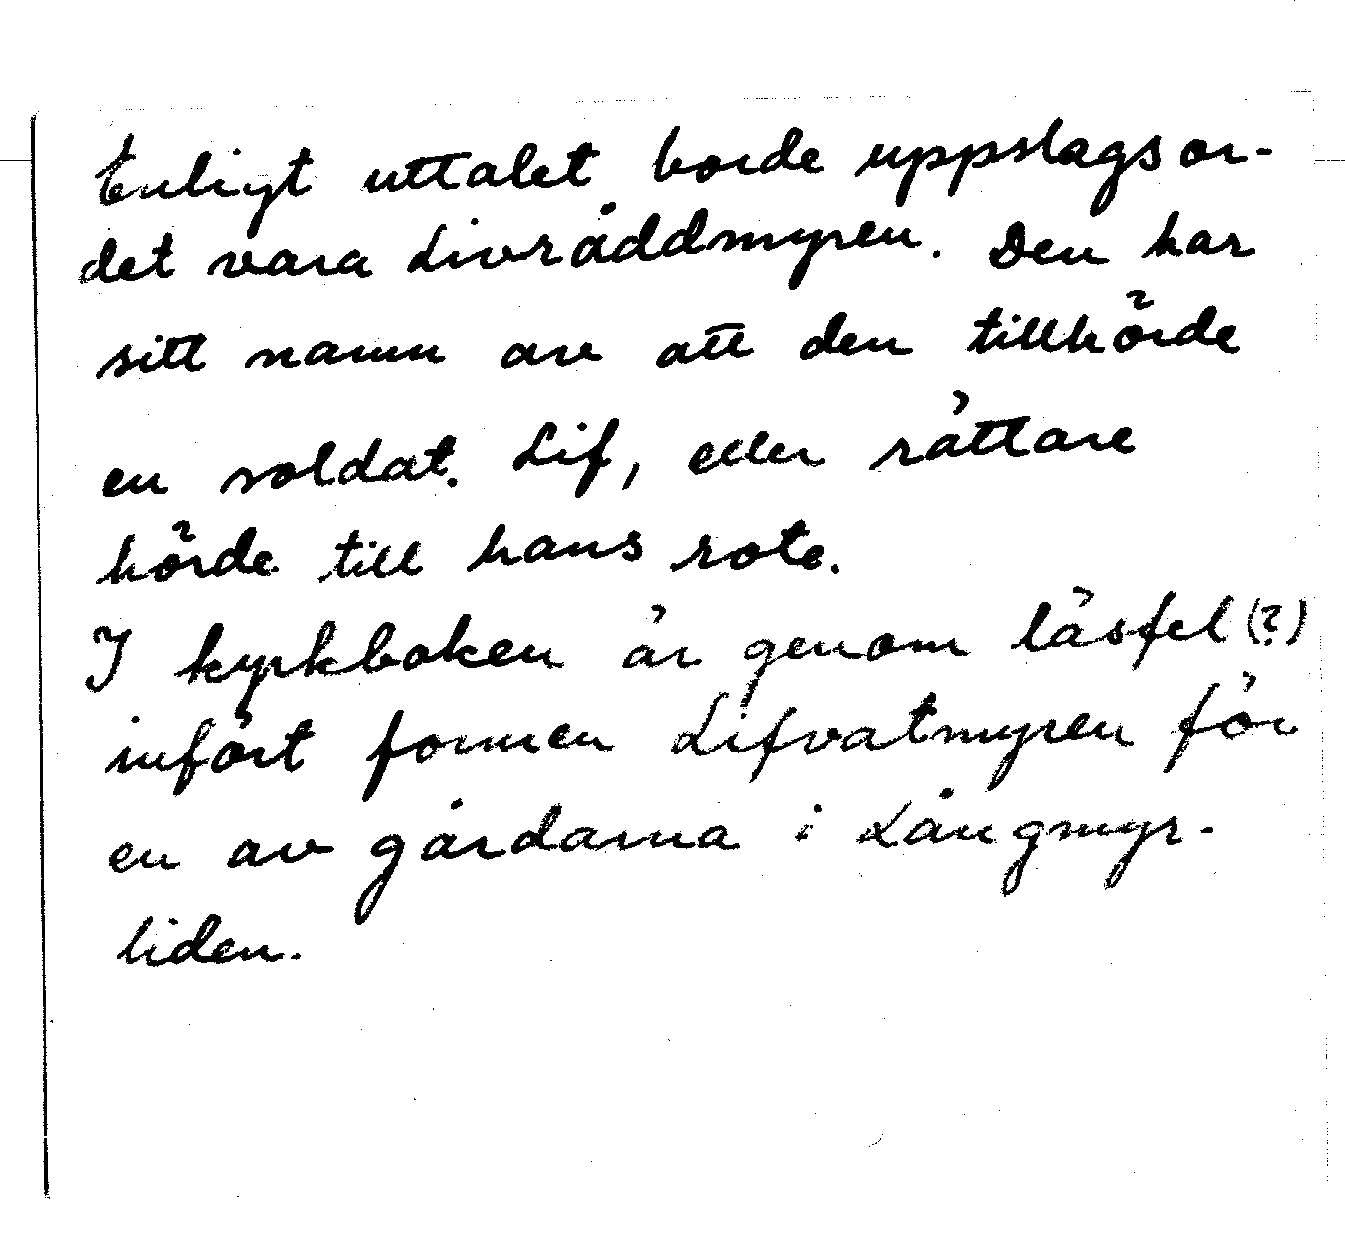 Enligt uttalet borde uppslagsor-
det vara Livråddmyren. Den har
sitt namn av att den tillhörde
en soldat. Lif, eller rättare
hörde till hans rote.
I kyrkboken är genom läsfel (?)
infört formen Lifvatmyren för
en av gårdarna i Långmyr-
liden.